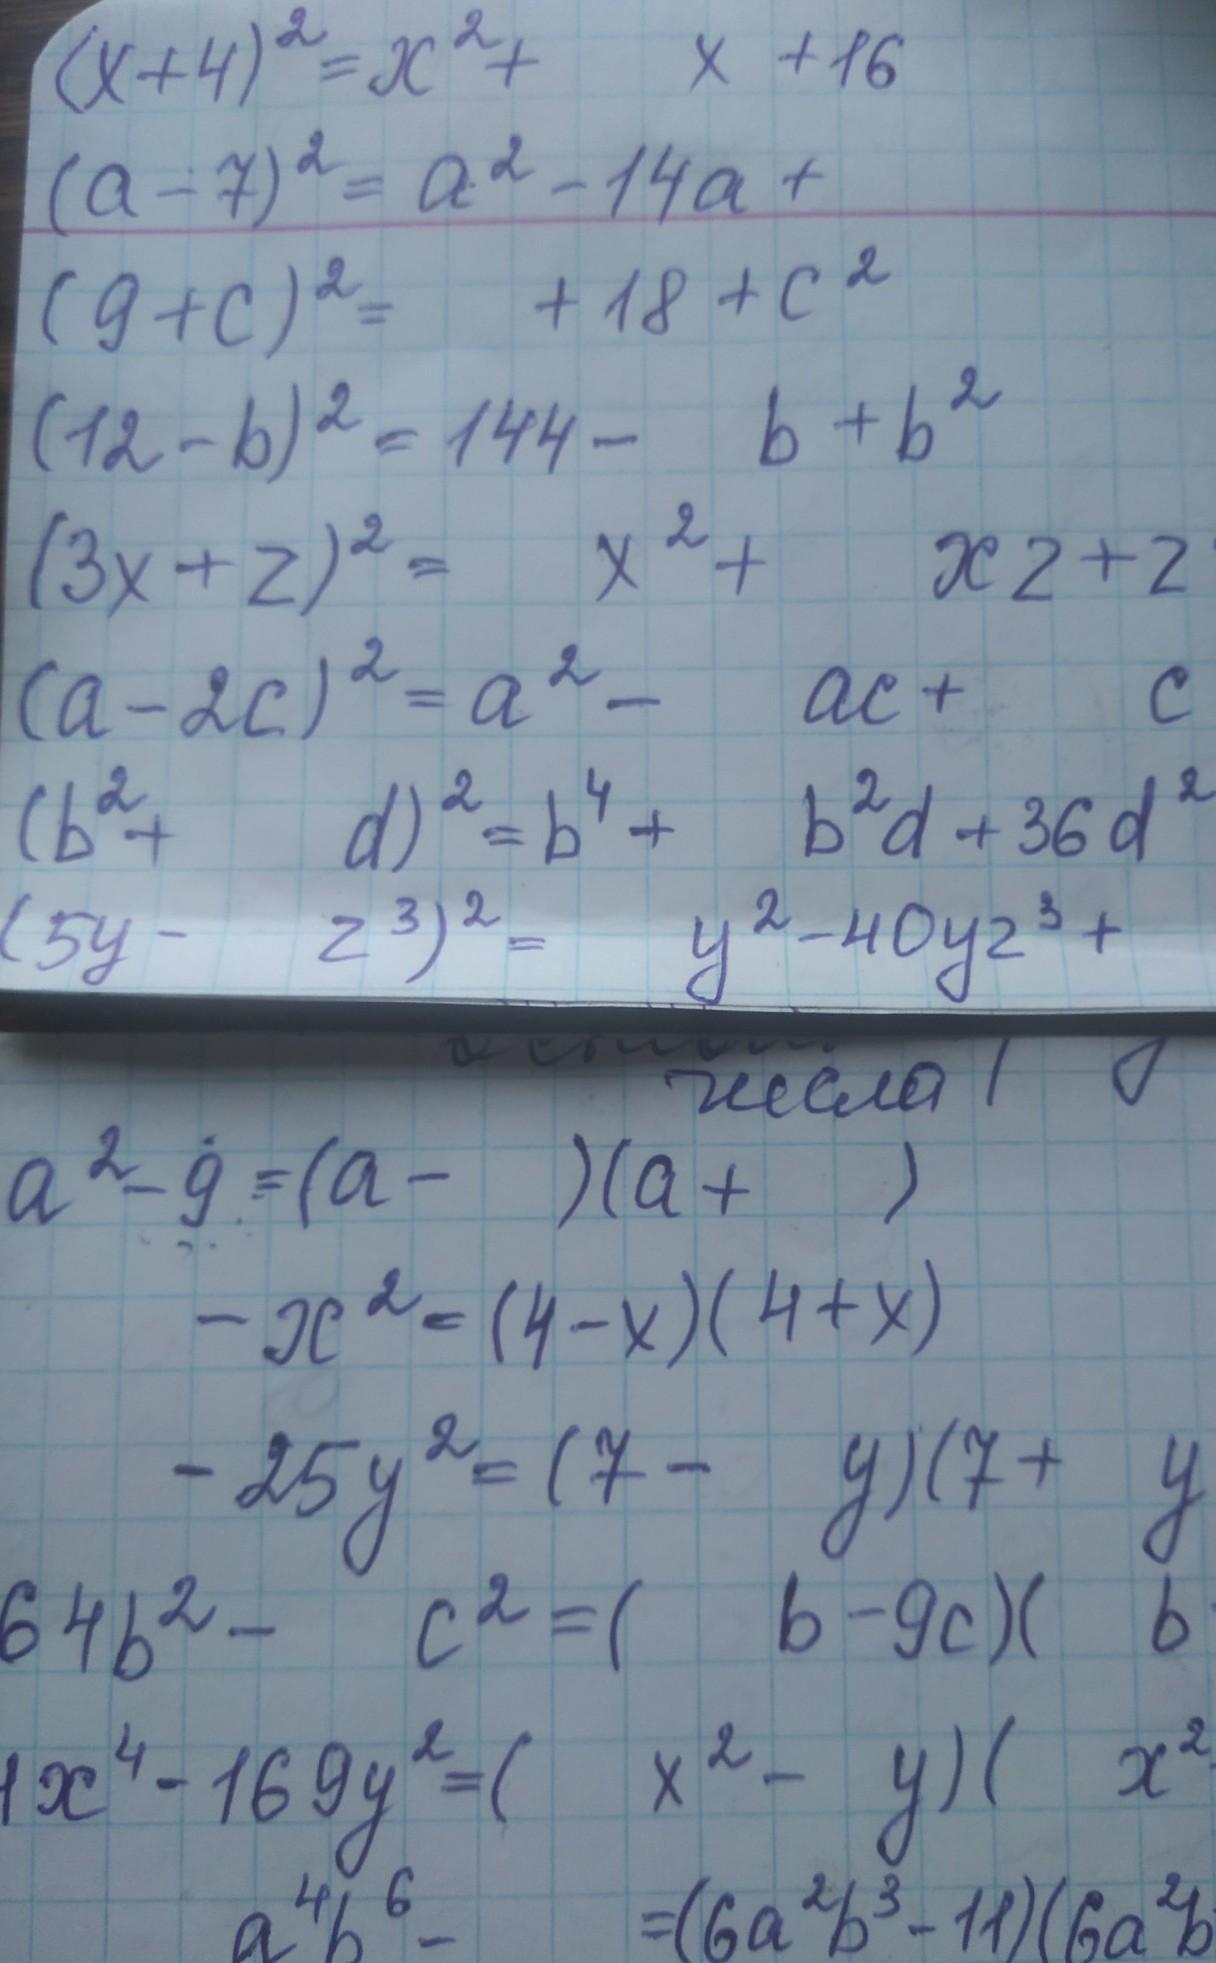 (x+4)²=x²+ x +16
(a-7)²=a²-14a+
(9+c)²= +18+c²
(12-b)²=144- b+b²
(3x+z)²= x²+ xz+z
(a-2c)²=a²- ac+ c
(b²+ d)²=b⁴+ b²d+36d²
(5y- z³)²= y²-40yz³+
числа
a²-9=(a- )(a+ )
-x²=(4-x)(4+x)
-25y²=(7- y)(7+ y
64b²- c²=( b-9c)( b
1x⁴-169y²=( x²- y)( x²
a⁴b⁶- =(6a²b³-11)(6a²b